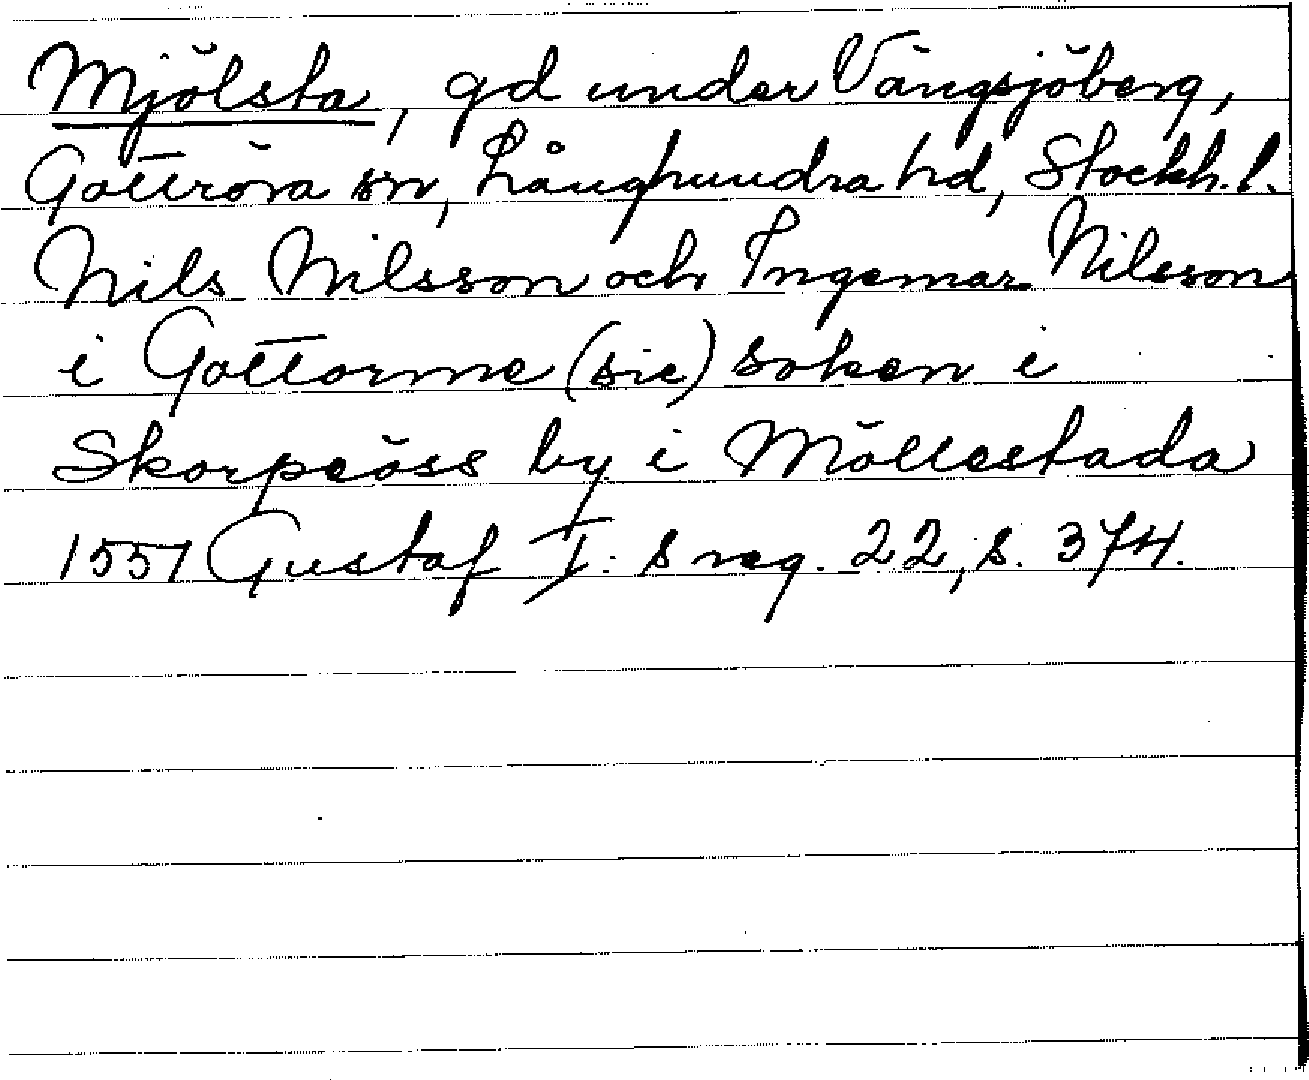 Mjölsta, gd under Vängsjöberg,
Gottröra sn, Långhundra hd, Stockh. l.
Nils Nilsson och Ingemar Nilsson
i Gottorme (sic) soken i
Skorpeöss by i Möllestada
1557 Gustaf I:s reg. 22, s. 374.